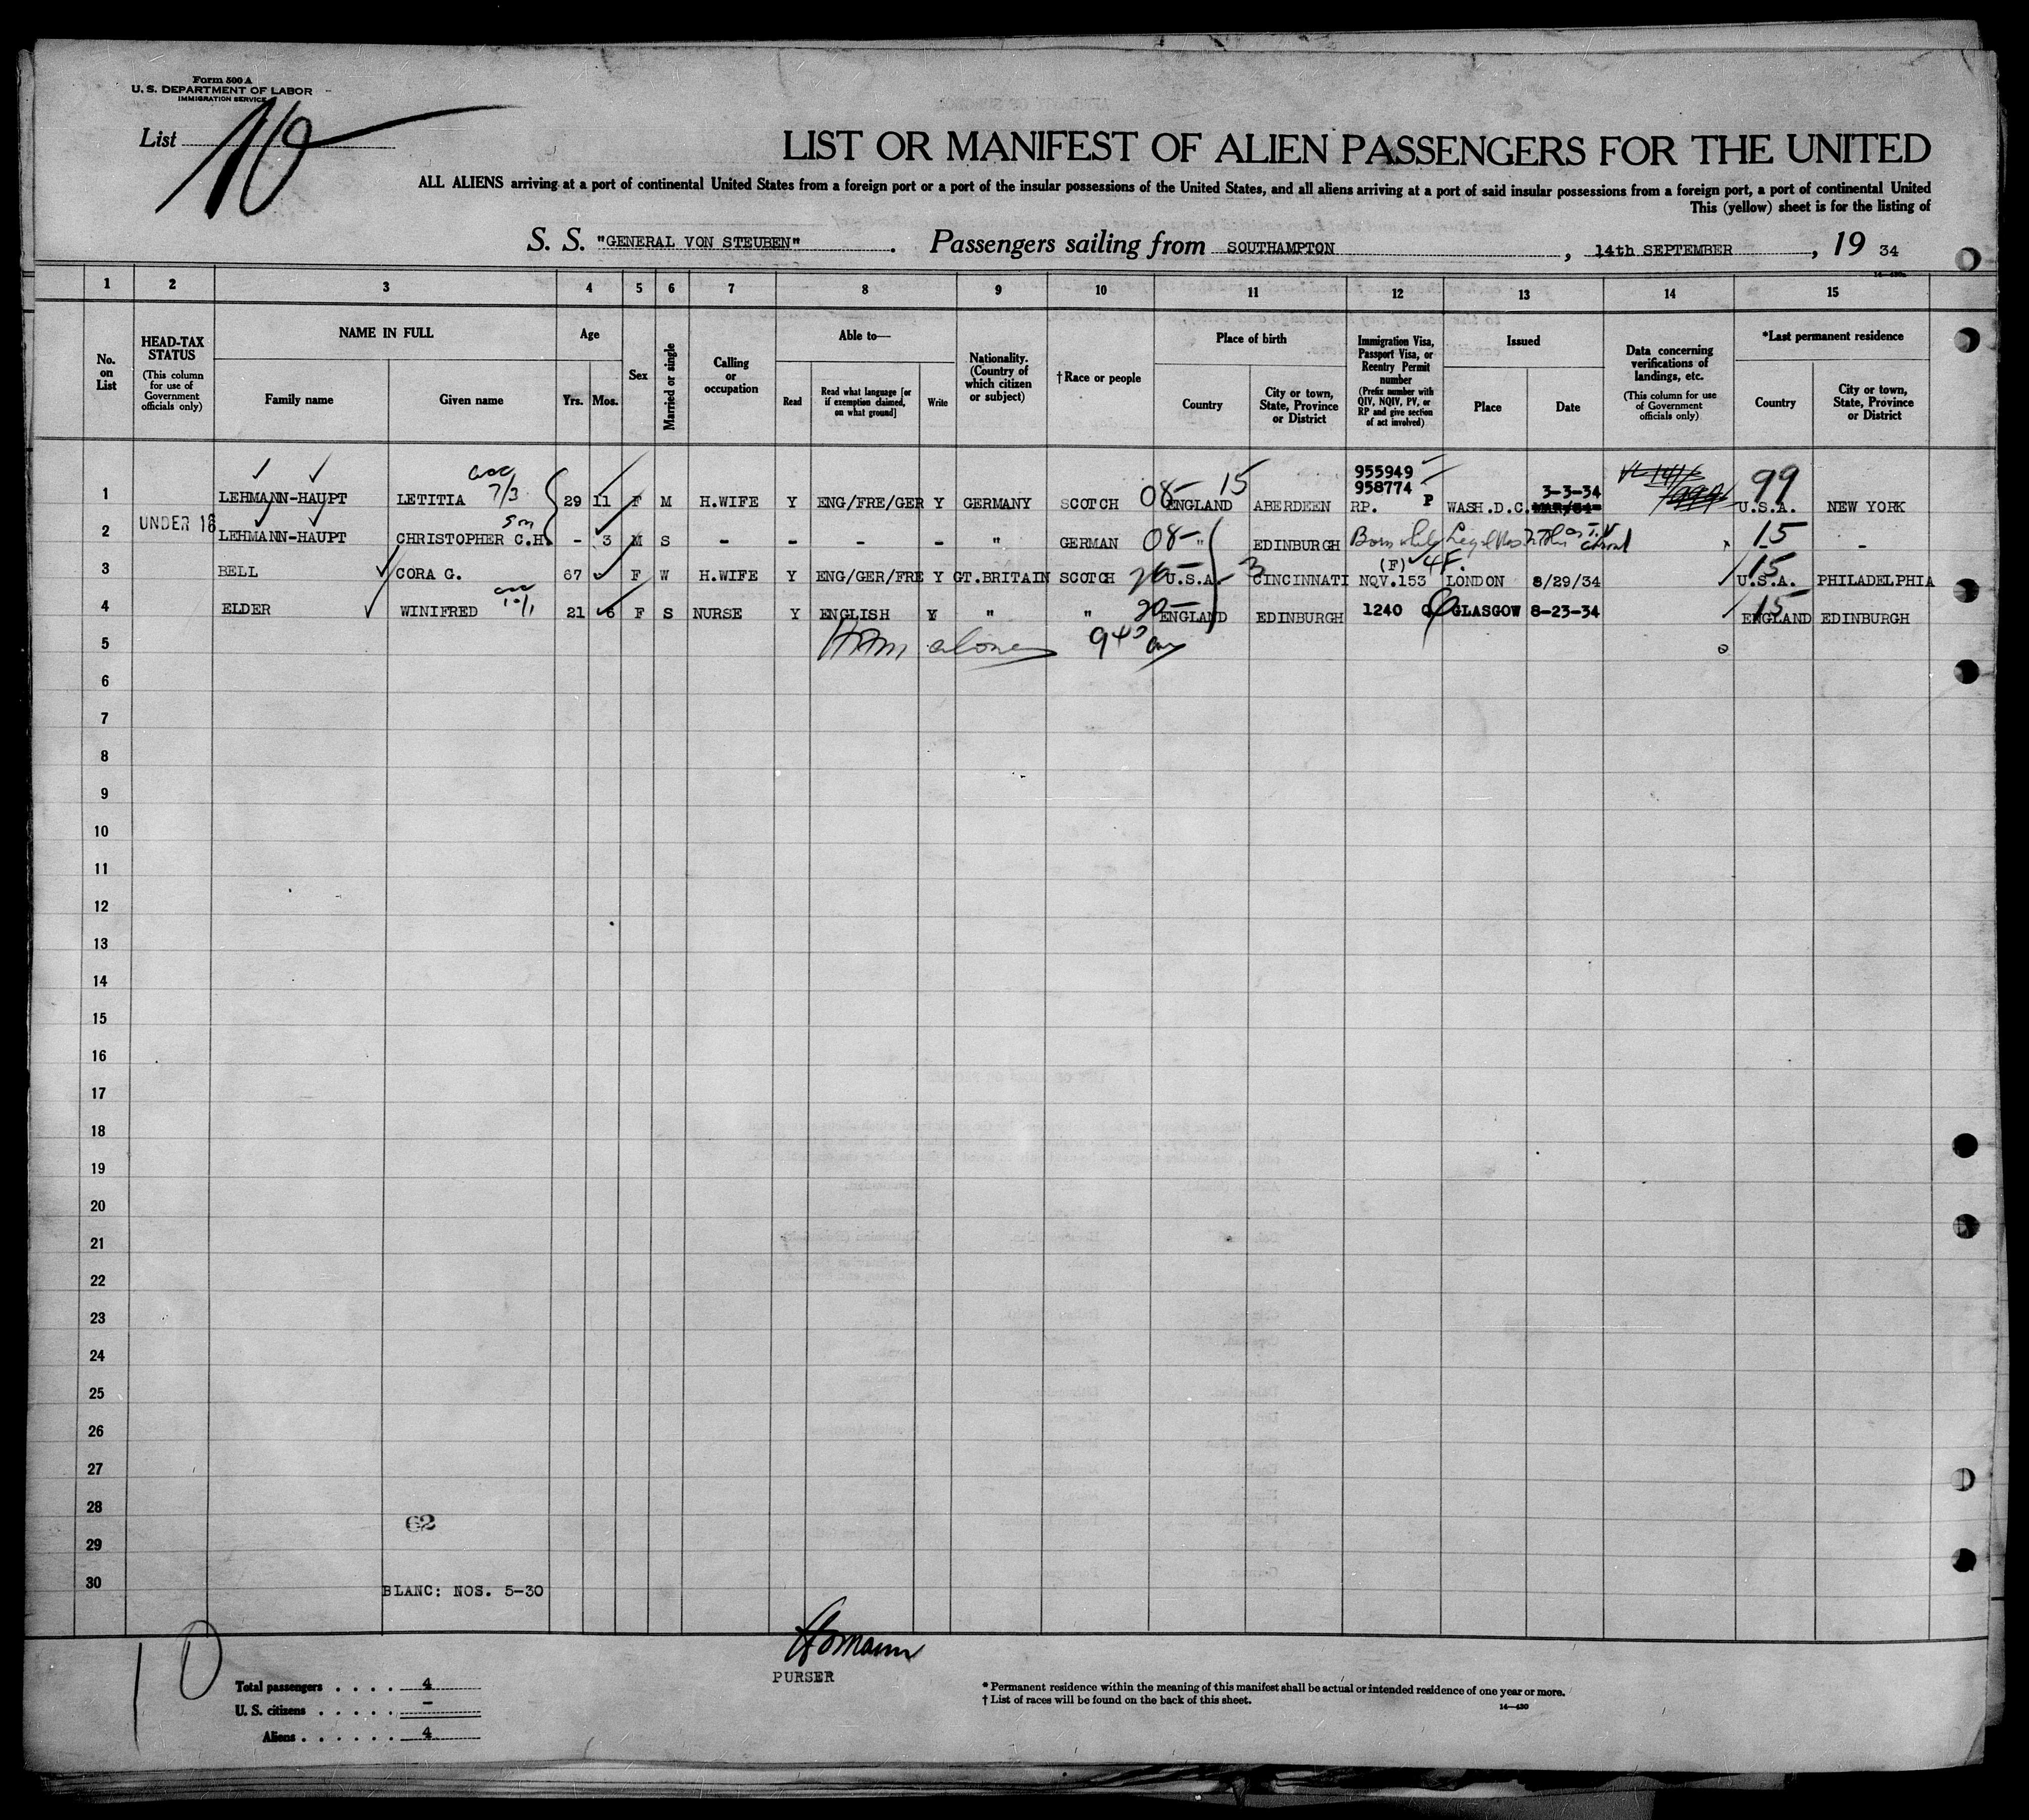 Form 500 A
U. S. DEPARTMENT OF LABOR
IMMIGRATION SERVICE
List 10
LIST OR MANIFEST OF ALIEN PASSENGERS FOR THE UNITED
ALL ALIENS arriving at a port of continental United States from a foreign port or a port of the insular possessions of the United States, and all aliens arriving at a port of said insular possessions from a foreign port, a port of continental United
This (yellow) sheet is for the listing of
S. S. "GENERAL VON STEUBEN" . Passengers sailing from SOUTHAMPTON , 14th SEPTEMBER , 19 34
1 2 3 4 5 6 7 8 9 10 11 12 13 14 15
No. on List
HEAD-TAX STATUS (This column for use of Government officials only)
NAME IN FULL
Family name
Given name
Age
Yrs. Mos.
Sex
Married or single
Calling or occupation
Able to—
Read
Read what language [or if exemption claimed, on what ground]
Write
Nationality. (Country of which citizen or subject)
†Race or people
Place of birth
Country
City or town, State, Province or District
Immigration Visa, Passport Visa, or Reentry Permit number (Prefix number with QIV, NQIV, PV, or RP and give section of act involved)
Issued
Place
Date
Data concerning verifications of landings, etc. (This column for use of Government officials only)
*Last permanent residence
Country
City or town, State, Province or District
955949
7/3 08- 15 958774 P 3-3-34 99
1 LEHMANN-HAUPT LETITIA 29 11 F M H.WIFE Y ENG/FRE/GER Y GERMANY SCOTCH ENGLAND ABERDEEN RP. WASH.D.C. U.S.A. NEW YORK
UNDER 16 son
2 LEHMANN-HAUPT CHRISTOPHER C.H. - 3 M S - - - - " GERMAN 08- " EDINBURGH Born while 15 - -
(F) 4F.
3 BELL CORA G. 67 F W H.WIFE Y ENG/GER/FRE Y GT.BRITAIN SCOTCH U.S.A. 3 CINCINNATI NQV.153 LONDON 8/29/34 15 U.S.A. PHILADELPHIA
10/1
4 ELDER WINIFRED 21 6 F S NURSE Y ENGLISH Y " " 20- ENGLAND EDINBURGH 1240 Q GLASGOW 8-23-34 15 ENGLAND EDINBURGH
5 alone 9 40 am
6
7
8
9
10
11
12
13
14
15
16
17
18
19
20
21
22
23
24
25
26
27
28
62
29
30 BLANC: NOS. 5-30
10
PURSER
Total passengers . . . . 4
U. S. citizens . . . . . -
Aliens . . . . . . 4
* Permanent residence within the meaning of this manifest shall be actual or intended residence of one year or more.
† List of races will be found on the back of this sheet.
14—430